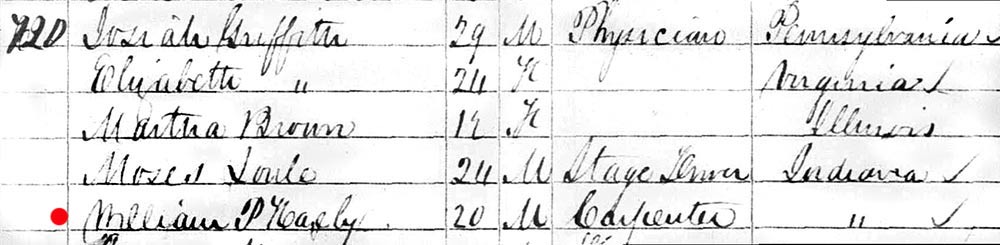 720 Josiah Griffith 29 M Physician Pennsylvania ✓
Elizabeth " 24 F Virginia ✓
Martha Brown 19 F Illinois
Moses Soule 24 M Stage Driver Indiana ✓
William P 20 M Carpenter " ✓